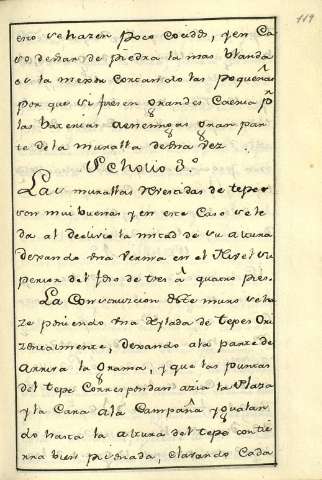 119
esto se hazen poco coudos, y en ca
so de ser de piedra la mas blanda
es la mexor cortando las pequeñas
por que si fuesen grandes caeria pr
las baterias enemigas gran par
te de la muralla de una vez.
Scholio 3.º
Las murallas revestidas de tepes
son mui buenas y en este caso se le
da al declivio la mitad de su altura
dexando una verma en el nivel su
perior del foso de tres â quatro pies.
La construzcion deste muro se ha
ze poniendo una hylada de tepes ori
zontalmente, dexando ala parte de
arriva la grama, y que las puntas
del tepe correspondan azia la Plaza
y la cara ala campaña y gualan
do hasta la altura del tepe con tie
rra bien pisada, clavando cada